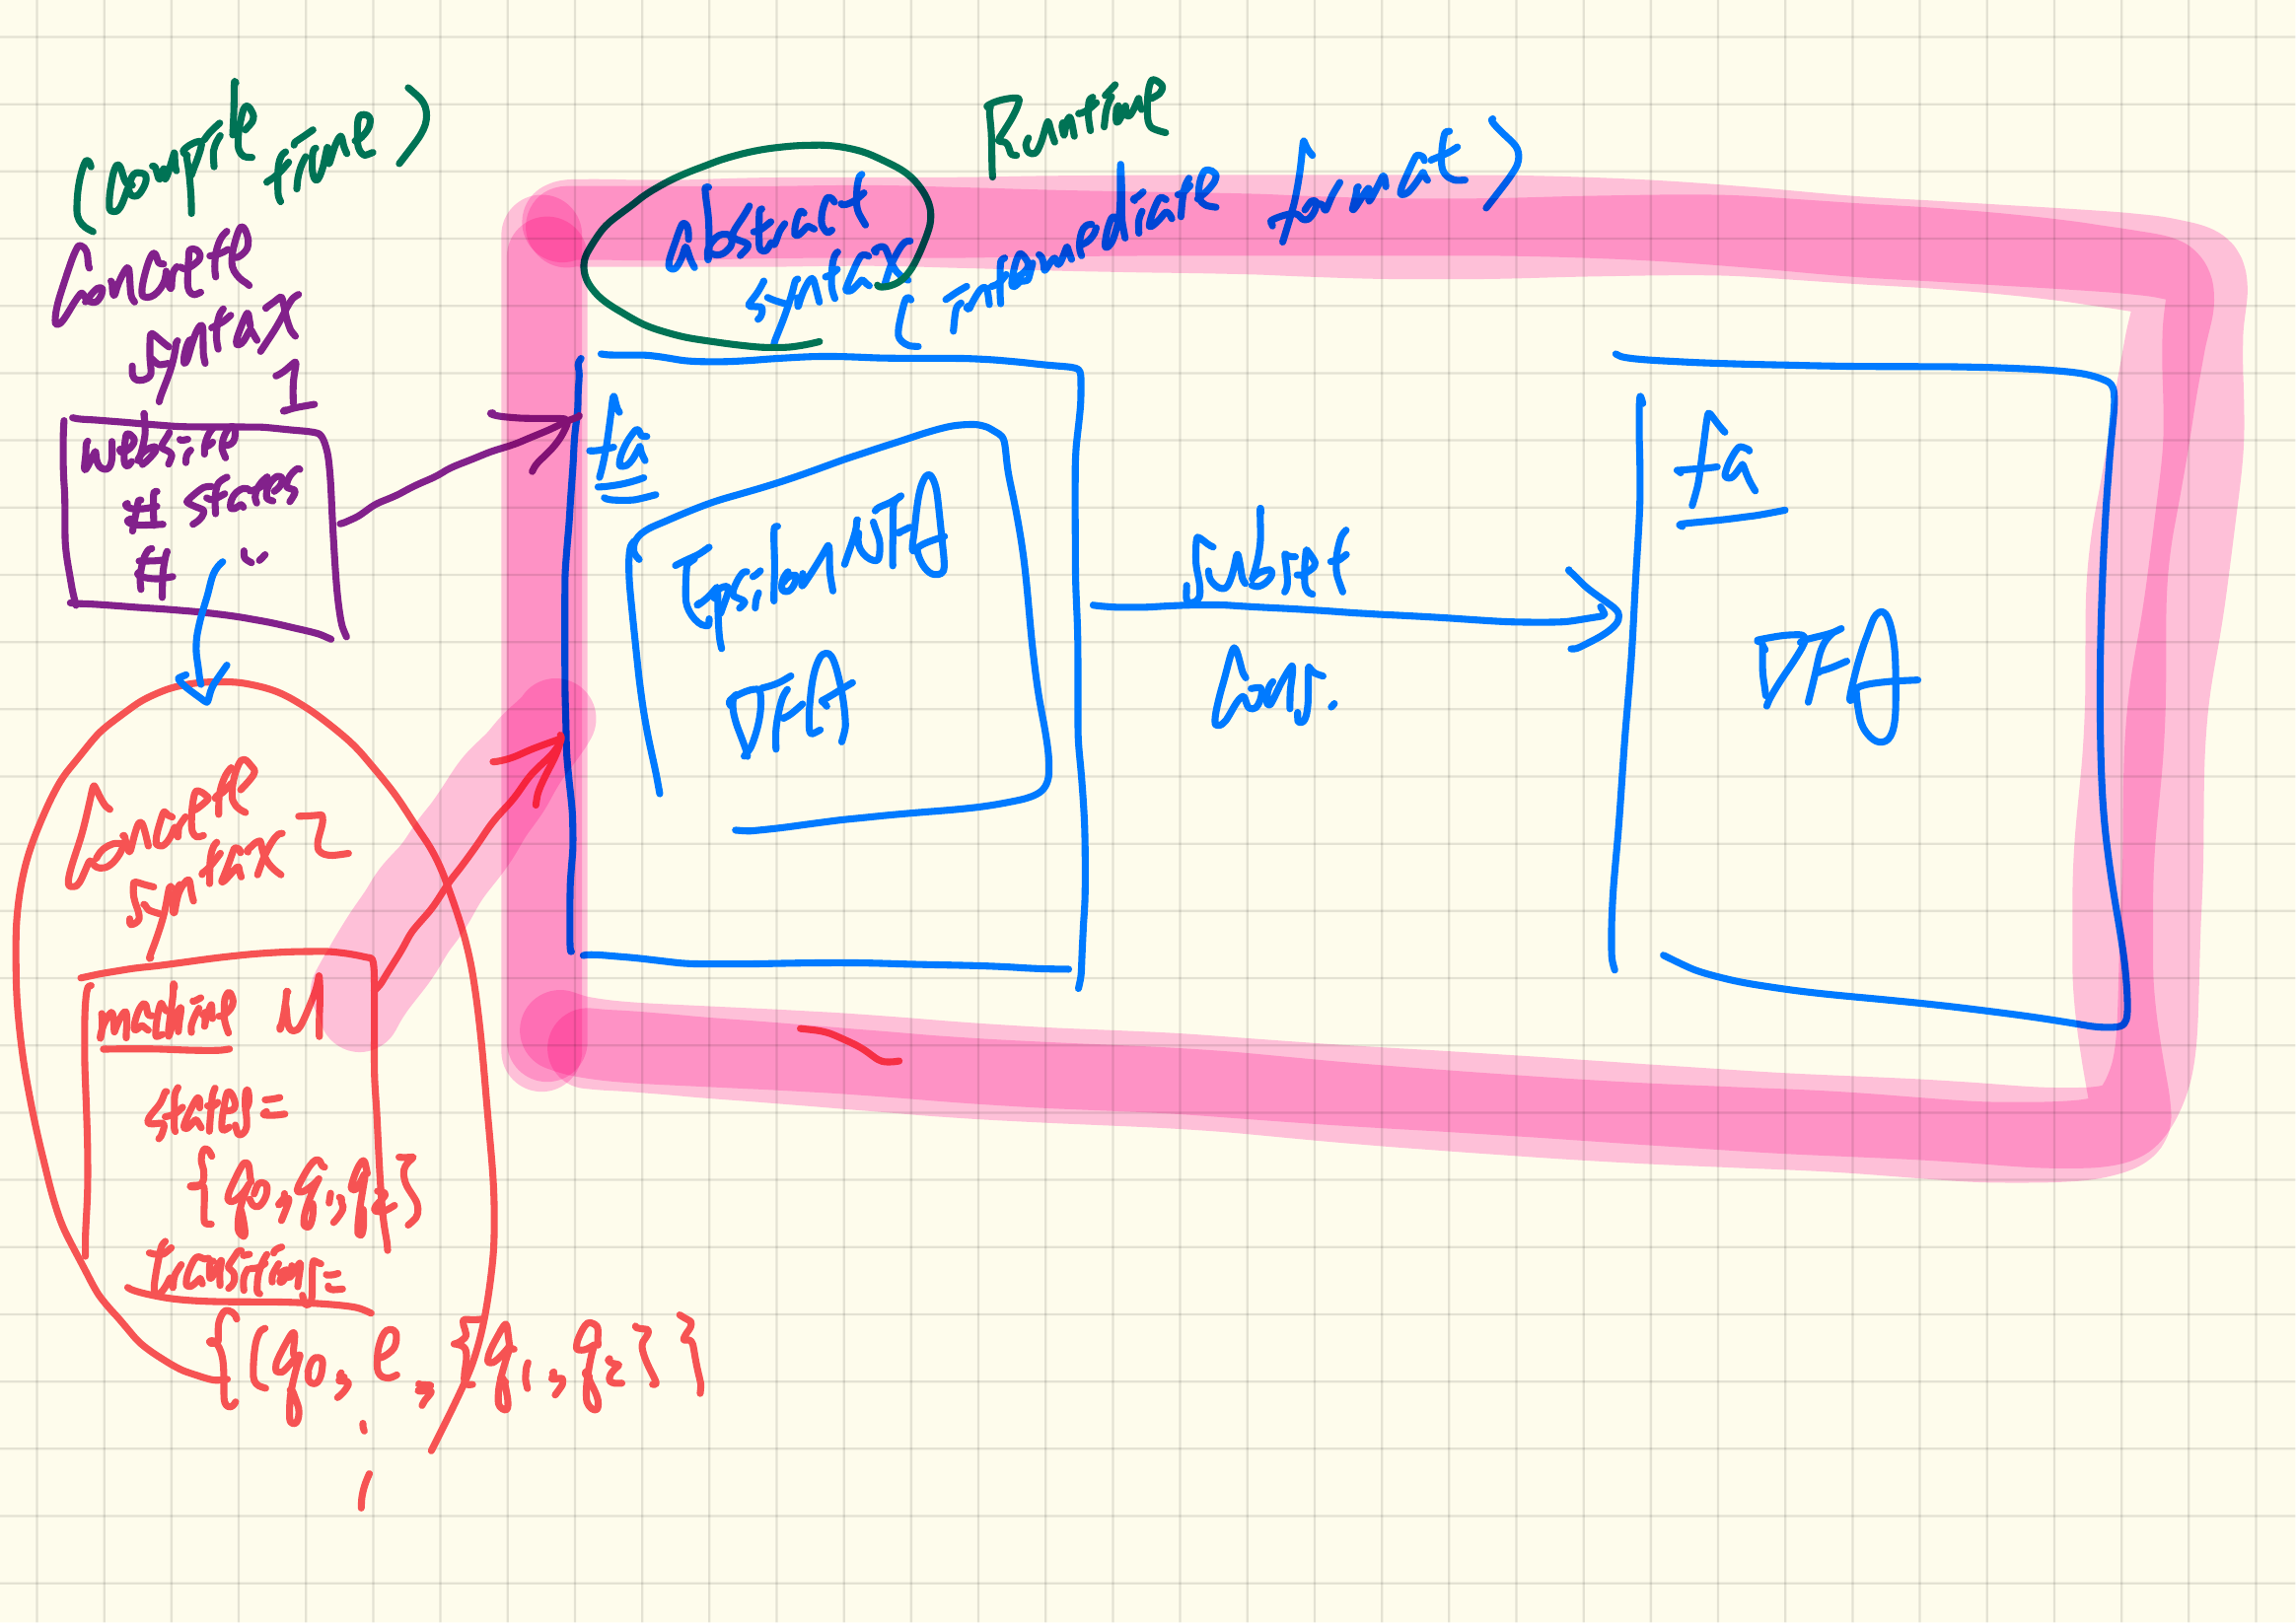 (compile
time)
Concrete
syntax
1
website
# states
# "
Runtime
Abstract
syntax
(Intermediate format)
fa
Epsilon NFA
DFA
Subset
Con.
fa
DFA
Concrete
syntax 2
machine M
states =
{q0, q1, q2}
transitions =
{(q0, e, {q1, q2}}